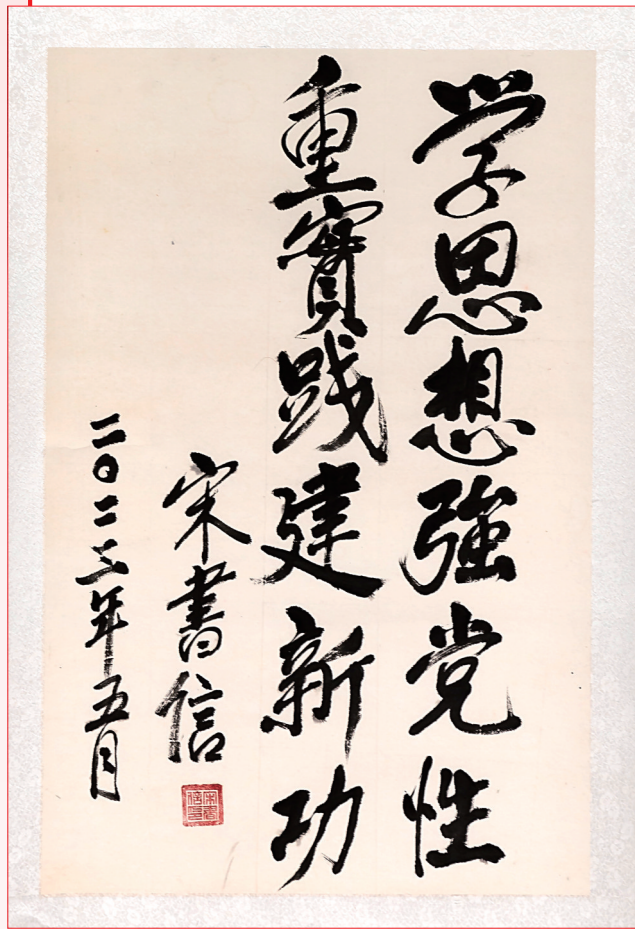 学思想強党性
重實践建新功
宋書信
二〇二三年五月